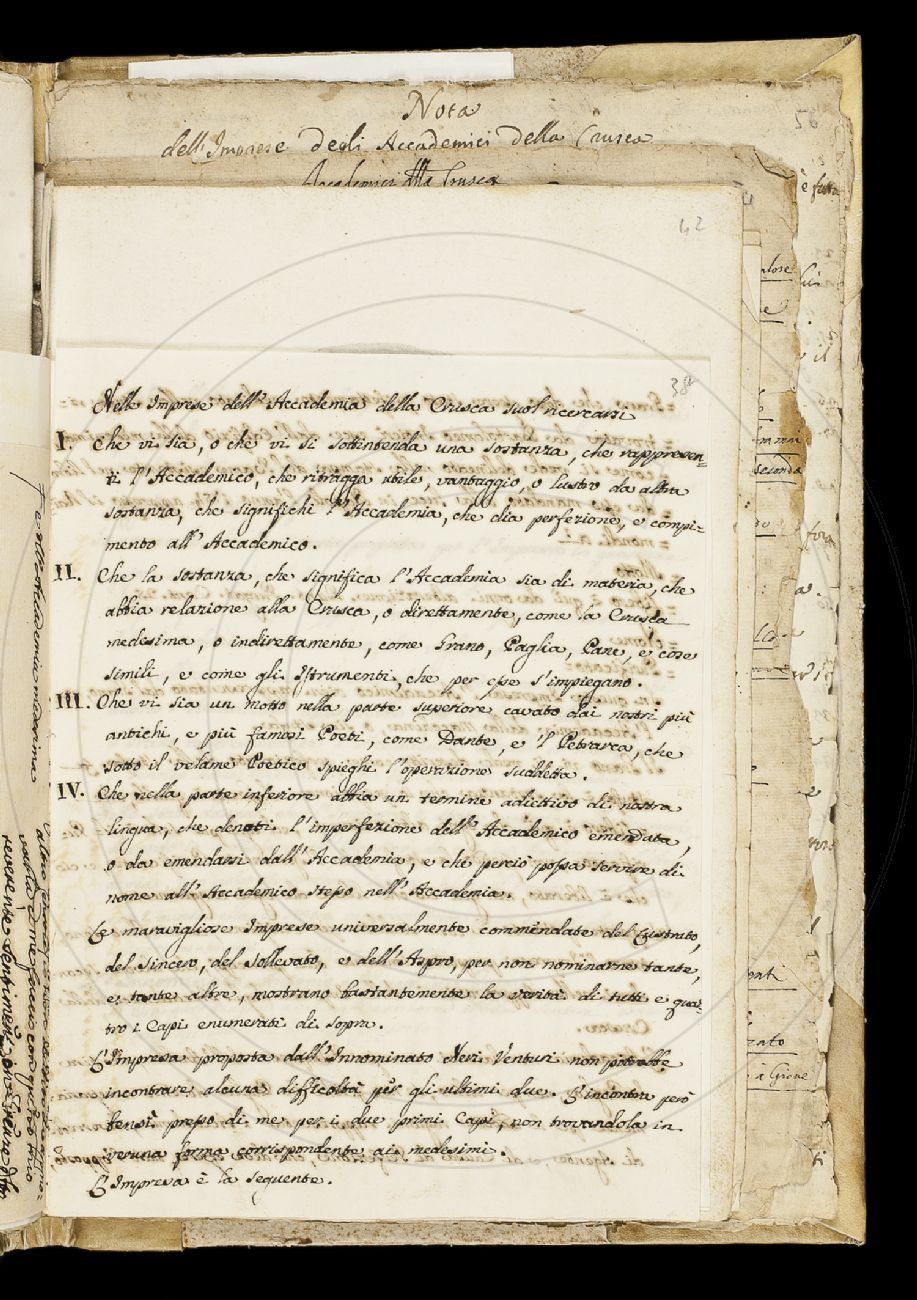 Nota
dell'Imprese degli Accademici della Crusca
Accademici della Crusca
56
42
38
Nelle Imprese dell'Accademia della Crusca suol ricercarsi
I. Che vi sia, o che vi si sottintenda una sostanza, che rappresen=
ti l'Accademico, che ritragga utile, vantaggio, o lustro da altra
sostanza, che significhi l'Accademia, che dia perfezione, e compi=
mento all'Accademico.
II. Che la sostanza, che significa l'Accademia sia di materia, che
abbia relazione alla Crusca, o direttamente, come la Crusca
medesima, o indirettamente, come Grano, Paglia, Pane, e cose
simili, e come gli Istrumenti, che per esse s'impiegano.
III. Che vi sia un motto nella parte superiore cavato dai nostri più
antichi, e più famosi Poeti, come Dante, e 'l Petrarca, che
sotto il velame Poetico spieghi l'operazione suddetta.
IV. Che nella parte inferiore abbia un termine adiettivo di nostra
lingua, che denoti l'imperfezione dell'Accademico emendata,
o da emendarsi dall'Accademia, e che perciò possa servire di
nome all'Accademico stesso nell'Accademia.
Le maravigliose Imprese universalmente commendate del Lustrato,
del Sincero, del Sollevato, e dell'Aspro, per non nominarne tante,
e tante altre, mostrano bastantemente la verità di tutti e quat=
tro i Capi enumerati di sopra.
L'Impresa proposta dall'Innominato Neri Venturi non potrebbe
incontrare alcuna difficoltà per gli ultimi due. L'incontra però
bensì presso di me per i due primi Capi, non trovandola in
veruna forma corrispondente ai medesimi.
L'Impresa è la seguente.
è fatta
il
seconda
fora
a Giove